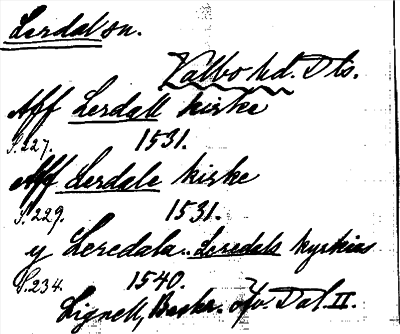 Lerdal sn.
Valbo hd. Dls.
Aff Lerdall kirke
S.227. 1531.
Aff Lerdale kirke
S.229. 1531.
y Leredala. Leredals kyrkies
S.234. 1540.
Lignell, Beskr. öfv Dal. II.